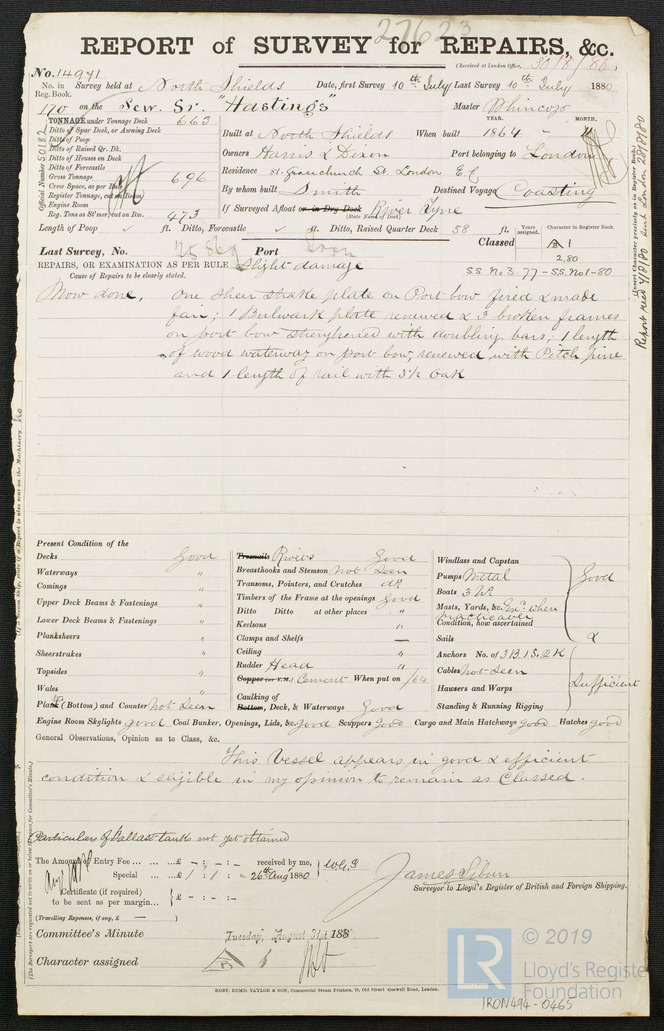 27623
REPORT of SURVEY for REPAIRS, &c.
(Received at London Office, 30/8/80)
No. 14941
No. in Reg. Book. Survey held at North Shields Date, first Survey 10th July Last Survey 10th July 1880
170 on the Scw. Sr. "Hastings" Master Whincop
TONNAGE under Tonnage Deck 663
Ditto of Spar Deck, or Awning Deck
Ditto of Poop
Ditto of Raised Qr. Dk.
Ditto of Houses on Deck
Ditto of Forecastle
Gross Tonnage 696
Crew Space, as per Rule
Register Tonnage, cut on Beam
Engine Room
Reg. Tons as St'mer, cut on Bm. 473
Official Number 50182
YEAR. MONTH.
Built at North Shields When built 1864 - 11
Owners Harris & Dixon Port belonging to London
Residence St. Gracechurch St. London E.C
By whom built Smith Destined Voyage Coasting
If Surveyed Afloat or in Dry Dock River Tyne
(State Name of Dock)
Length of Poop ft. Ditto, Forecastle ft. Ditto, Raised Quarter Deck 58 ft.
Years assigned. Character in Register Book.
Last Survey, No. Port Classed A 1
2,80
REPAIRS, OR EXAMINATION AS PER RULE Slight damage
Cause of Repairs to be clearly stated.
S.S. No. 3. 77 - S.S. No 1 - 80
Now done, One sheer strake plate on Port bow fired & made
fair; 1 Bulwark plate renewed & 3 broken frames
on port bow strengthened with doubling bars; 1 length
of wood waterway on port bow, renewed with Pitch pine
and 1 length of rail with 3½ Oak
Present Condition of the
Decks Good
Waterways "
Comings "
Upper Deck Beams & Fastenings "
Lower Deck Beams & Fastenings "
Planksheers "
Sheerstrakes "
Topsides "
Wales "
Plank (Bottom) and Counter Not Seen
Treenails Rivets Good
Breasthooks and Stemson Not Seen
Transoms, Pointers, and Crutches do
Timbers of the Frame at the openings Good
Ditto Ditto at other places "
Keelsons "
Clamps and Shelfs —
Ceiling "
Rudder Head "
Copper (or Y.M.) Cement When put on /64
Caulking of
Bottom, Deck, & Waterways Good
Windlass and Capstan
Pumps Metal Good
Boats 3 W.
Masts, Yards, &c. Exd. when practicable
Condition, how ascertained
Sails &
Anchors No. of 3 B 1 S. 2 K
Cables Not Seen Sufficient
Hawsers and Warps
Standing & Running Rigging
Engine Room Skylights good Coal Bunker, Openings, Lids, &c. Good Scuppers Good Cargo and Main Hatchways good Hatches good
General Observations, Opinion as to Class, &c.
This Vessel appears in good & efficient
condition & eligible in my opinion to remain as Classed.
Particulars of Ballast tanks not yet obtained
The Amount of Entry Fee ... ... £ - : - : - received by me,
Special ... ... £ 1 : 1 : - 26th Augt 1880
Certificate (if required)
to be sent as per margin... £ - : - : -
(Travelling Expenses, if any, £ — )
Surveyor to Lloyd's Register of British and Foreign Shipping.
Committee's Minute Tuesday, August 31st 188
Character assigned A 1
ROBT. EDMD. TAYLOR & SON, Commercial Steam Printers, 19, Old Street Goswell Road, London.
LR
© 2019
Lloyd's Registe
Foundation
IRON494-0465